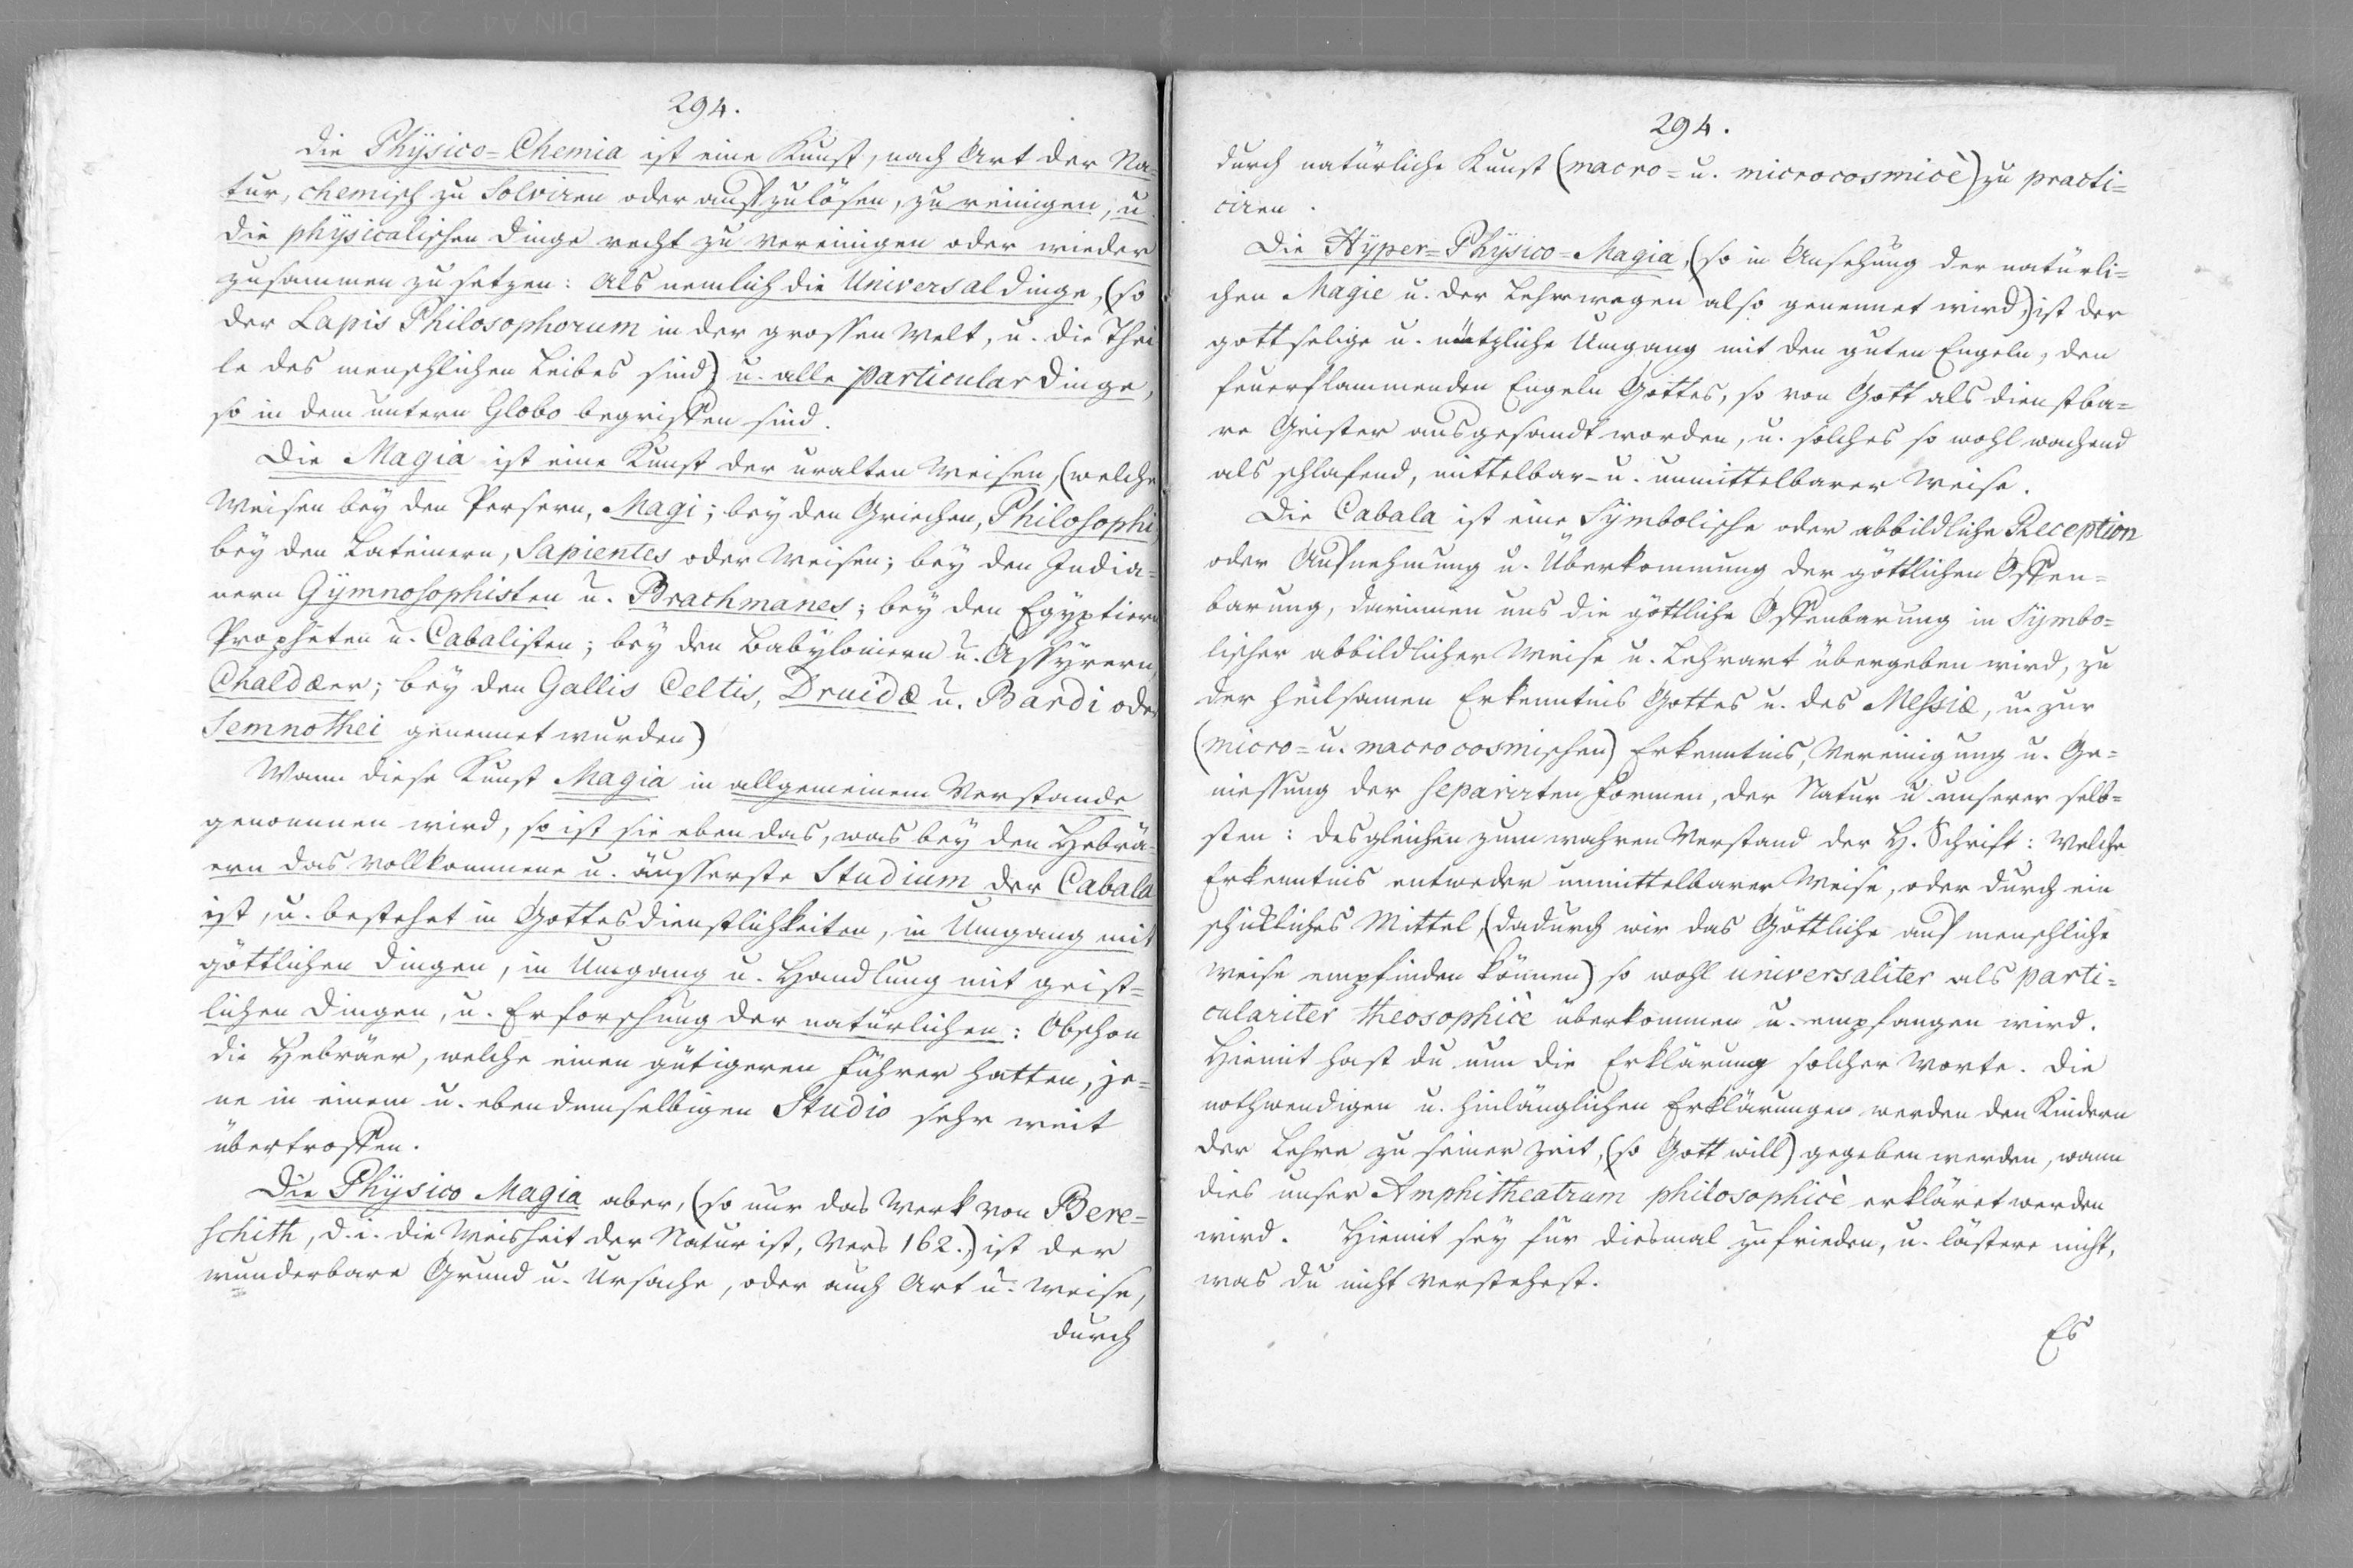 294.
Die Physico=Chemia ist eine Kunst, nach Art der Na=
tur, chemisch zu Solviren oder aufzulösen, zu reinigen, u.
die physicalischen Dinge recht zu vereinigen oder wieder
zusammen zu setzen: Als nemlich die Universaldinge, (so
der Lapis Philosophorum in der grossen Welt, u. die Thei
le des menschlichen Leibes sind) u. alle particular Dinge,
so in dem untern Globo begriffen sind.
Die Magia ist eine Kunst der uralten Weisen, (welche
Weisen bey den Persern, Magi; bey den Griechen, Philosophi
bey den Lateinern, Sapientes oder Weisen; bey den India=
nern Gymnosophisten u. Brachmanes; bey den Egyptiern
Propheten u. Cabalisten; bey den Babyloniern u. Assyrern,
Chaldæer; bey den Gallis Celtis, Druidæ u. Bardi oder
Semnothei genennet wurden)
Wann diese Kunst Magia in allgemeinem Verstande
genommen wird, so ist sie eben das, was bey den Hebrä=
ern das vollkommene u. äusserste Studium der Cabala
ist, u. bestehet in Gottesdienstlichkeiten, in Umgang mit
göttlichen Dingen, in Umgang u. Handlung mit geist=
lichen Dingen, u. Erforschung der natürlichen: Obschon
die Hebräer, welche einen gütigeren Führer hatten, je=
ne in einem u. ebendemselbigen Studio sehr weit
übertroffen.
Die Physico Magia aber, (so nur das Werk von Bere=
schith, d. i. die Weisheit der Natur ist, Vers 162.) ist der
wunderbare Grund u. Ursache, oder auch Art u. Weise,
durch
294.
durch natürliche Kunst (macro= u. microcosmicè) zu practi=
ciren.
Die Hyper=Physico=Magia, (so in Ansehung der natürli=
chen Magie u. der Lehre wegen also genennet wird,) ist der
gottselige u. nützliche Umgang mit den guten Engeln, den
feuerflammenden Engeln Gottes, so von Gott als dienstba=
re Geister ausgesandt worden, u. solches so wohl wachend
als schlafend, mittelbar- u. unmittelbarer Weise.
Die Cabala ist eine Symbolische oder abbildliche Reception
oder Aufnehmung u. Überkommung der göttlichen Offen=
barung, darinnen uns die göttliche Offenbarung in Symbo=
lischer abbildlicher Weise u. Lehrart übergeben wird, zu
der heilsamen Erkenntnis Gottes u. des Messiæ, u. zur
(micro= u. macrocosmischen) Erkenntnis, Vereinigung u. Ge=
niessung der separirten Formen, der Natur u. unserer selb=
sten: desgleichen zum wahren Verstand der H. Schrift: Welche
Erkenntnis entweder unmittelbarer Weise, oder durch ein
schickliches Mittel, (dadurch wir das Göttliche auf menschliche
Weise empfinden können) so wohl universaliter als parti=
culariter theosophicè überkommen u. empfangen wird.
Hiemit hast du nun die Erklärung solcher Worte. Die
nothwendigen u. hinlänglichen Erklärungen werden den Kindern
der Lehre zu seiner Zeit, (so Gott will) gegeben werden, wann
dies unser Amphitheatrum philosophicè erkläret werden
wird. Hiemit sey für diesmal zufrieden, u. lästere nicht,
was du nicht verstehest.
Es